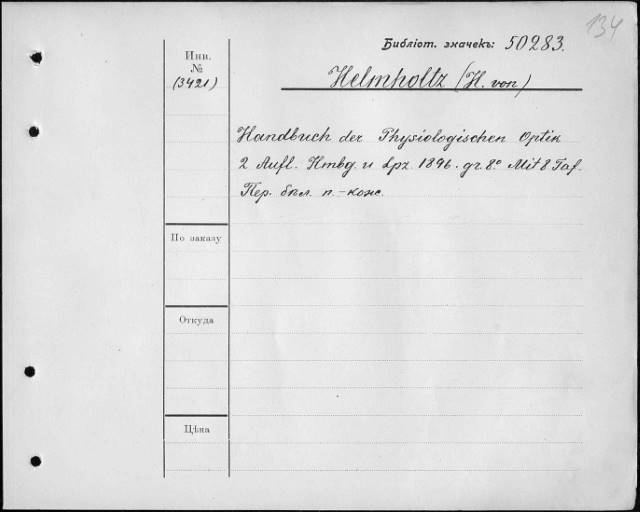 134
Библіот. значекъ: 50283.
Инв.
№
(3421)
Helmholtz (H. von)
Handbuch der Physiologischen Optik
2 Aufl. Hmbg. u Lpz. 1896. gr. 8° Mit 8 Taf.
Пер. бкл. п.-кож.
По заказу
Откуда
Цѣна